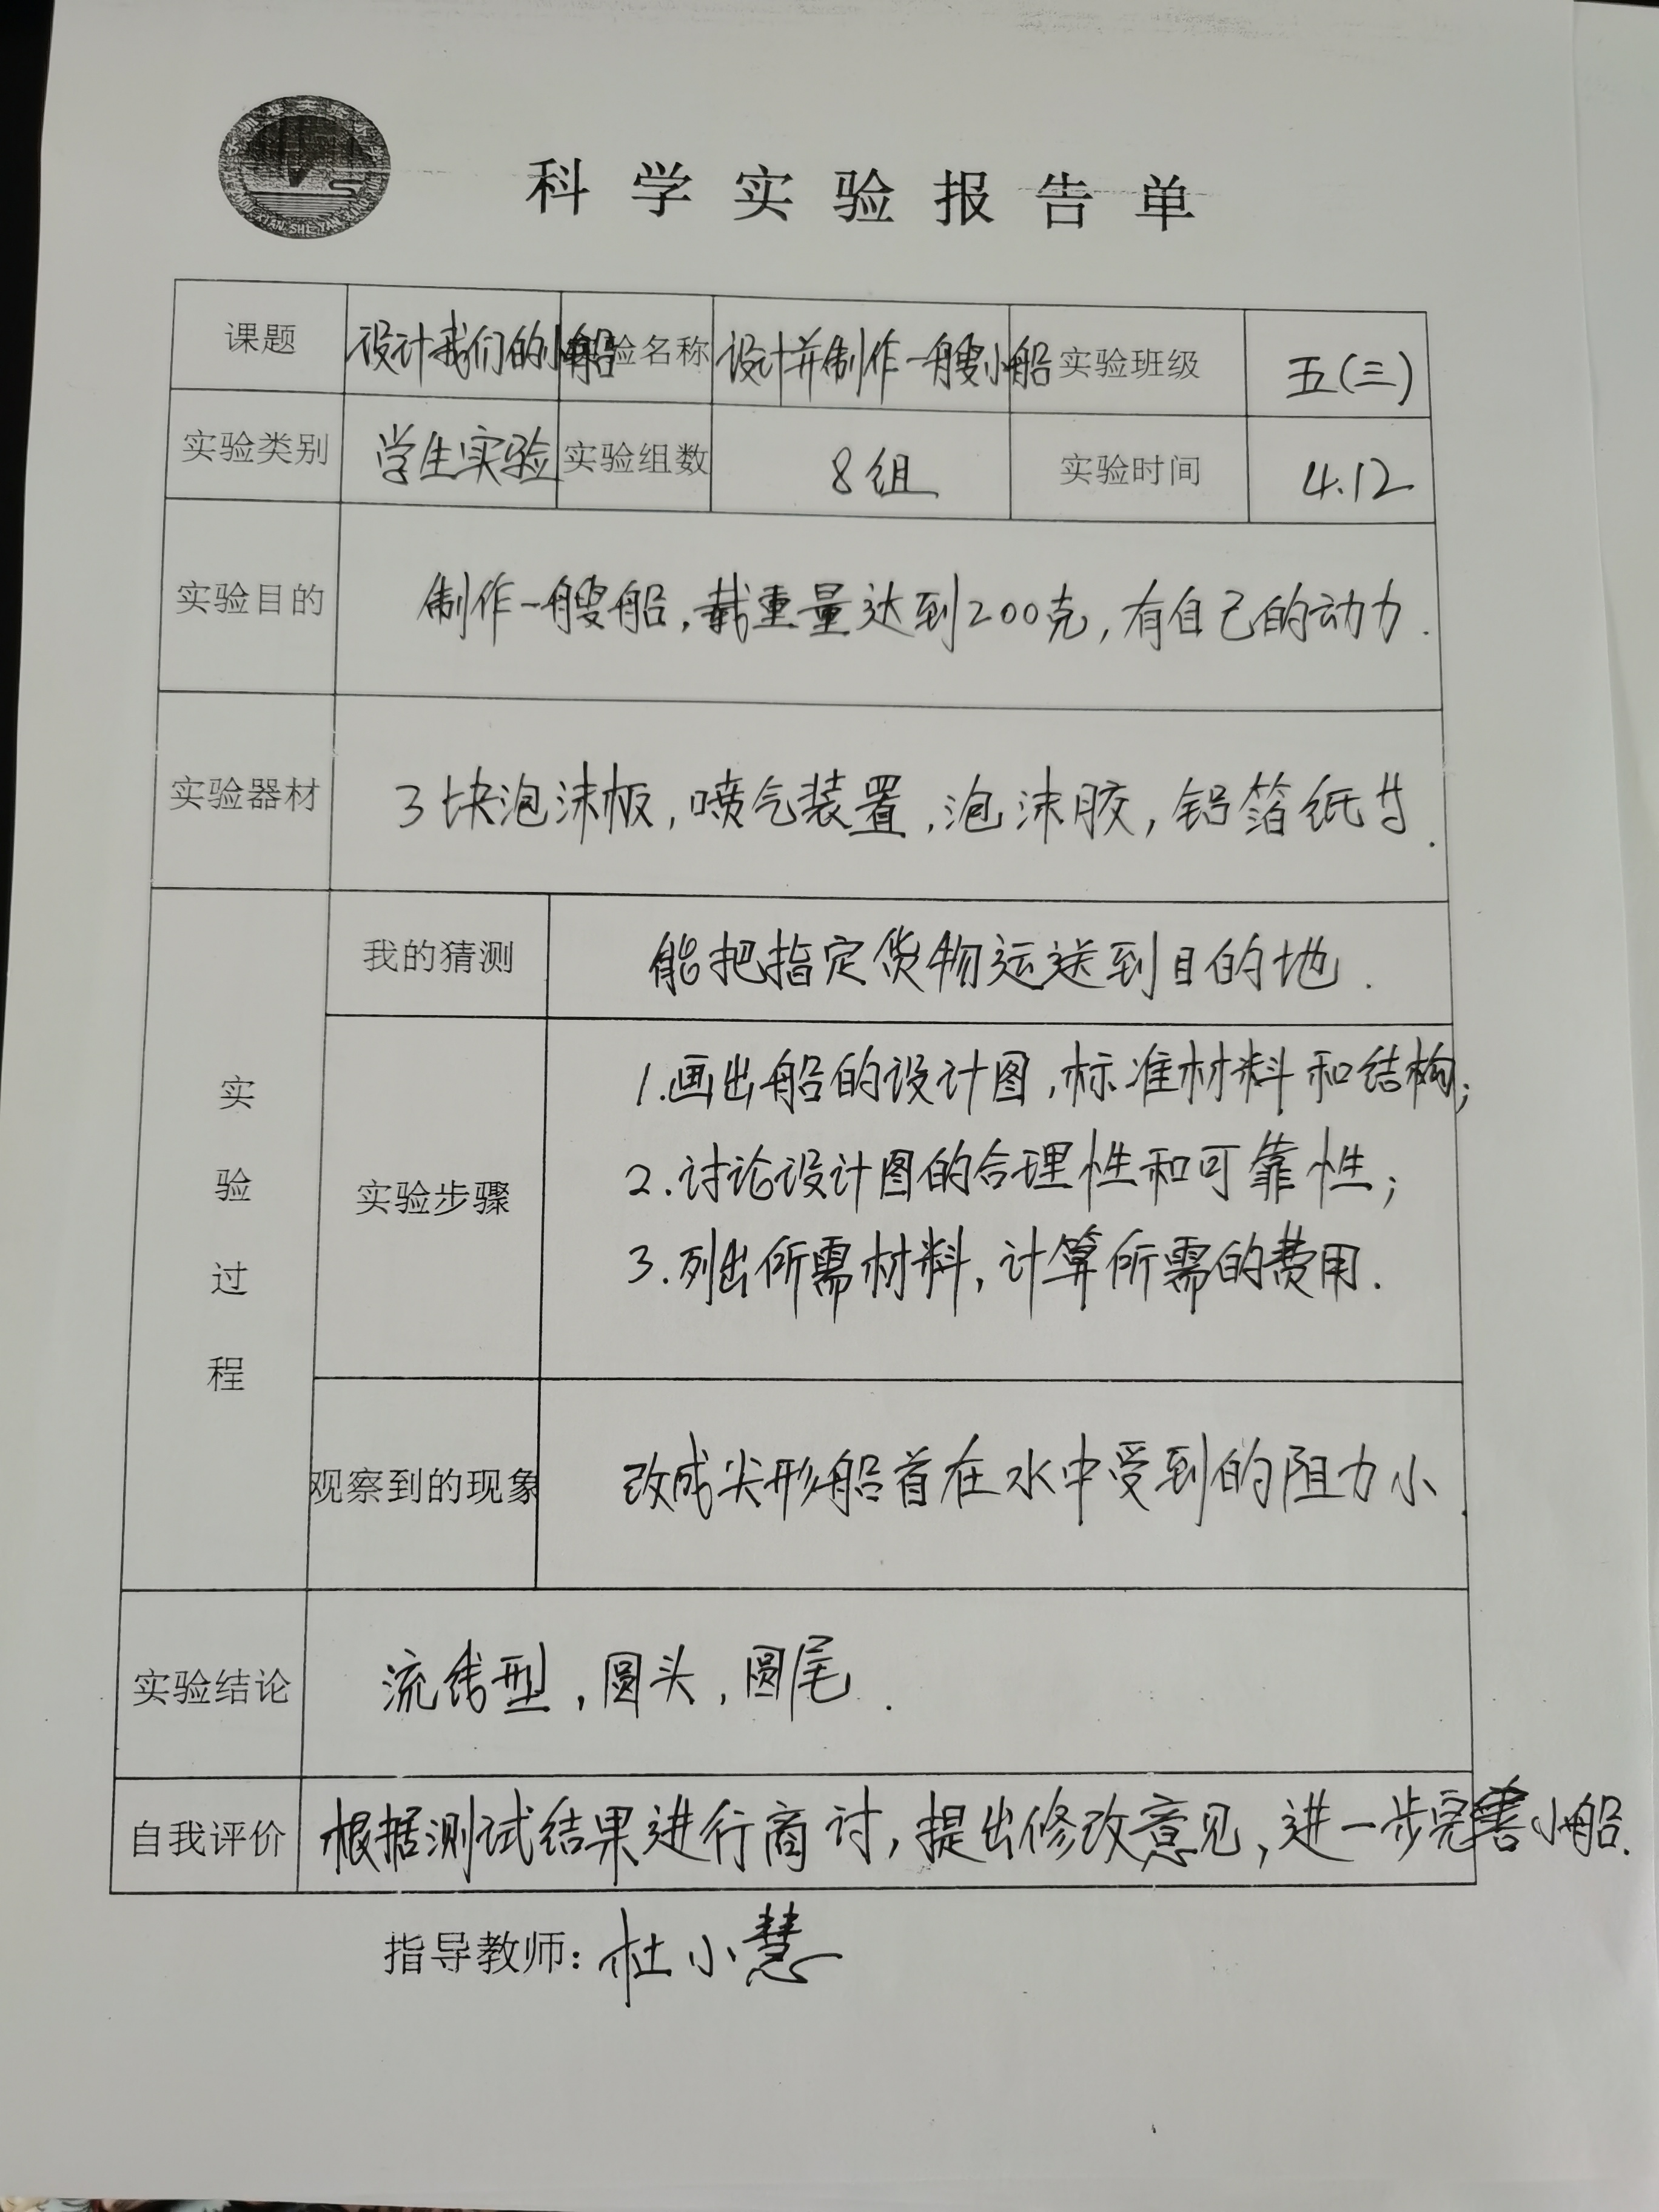 科学实验报告单
课题 设计我们的小船 实验名称 设计并制作一艘小船 实验班级 五(三)
实验类别 学生实验 实验组数 8组 实验时间 4.12
实验目的 制作一艘船,载重量达到200克,有自己的动力.
实验器材 3块泡沫板,喷气装置,泡沫胶,铝箔纸等.
实验过程
我的猜测 能把指定货物运送到目的地.
实验步骤
1.画出船的设计图,标准材料和结构;
2.讨论设计图的合理性和可靠性;
3.列出所需材料,计算所需的费用.
观察到的现象 改成尖形船首在水中受到的阻力小.
实验结论 流线型,圆头,圆尾.
自我评价 根据测试结果进行商讨,提出修改意见,进一步完善小船.
指导教师:杜小慧